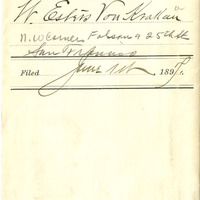 W. Estis Von Krakau
N.W Corner Folsom & 25th St
San Francisco
Filed June 1st 1897.